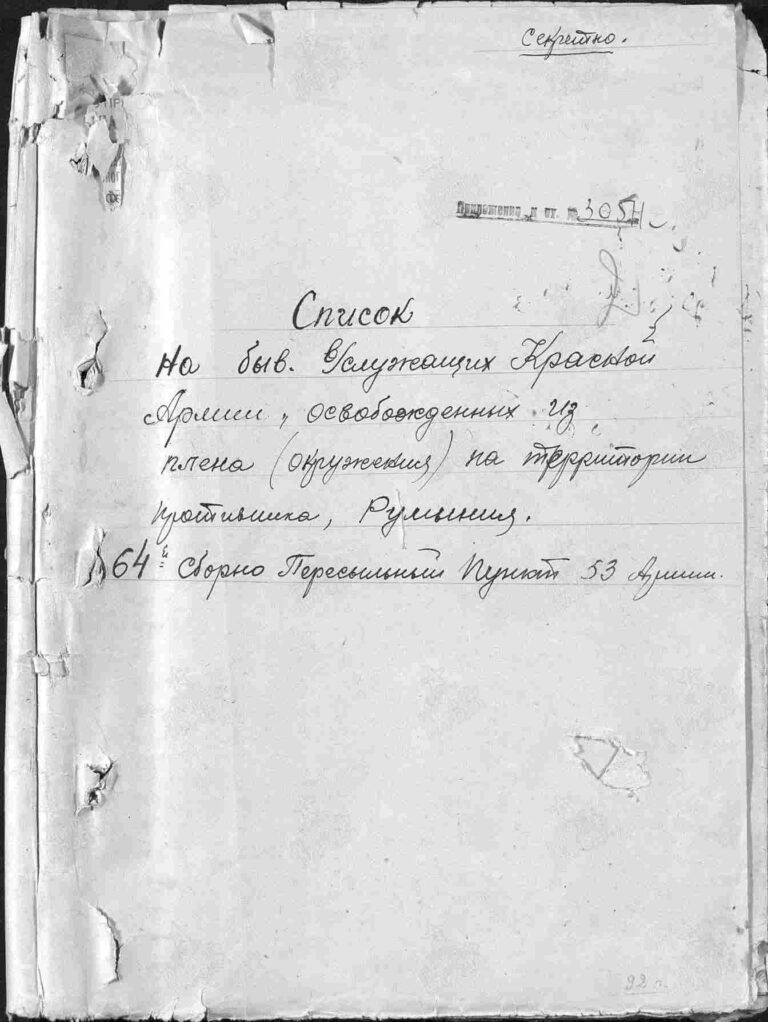 Секретно.
Приложение к вх. № 3054
Список
на быв. в/служащих Красной
Армии, освобожденных из
плена (окружения) на территории
противника, Румыния.
64й Сборно Пересыльный Пункт 53 Армии.
92 л.